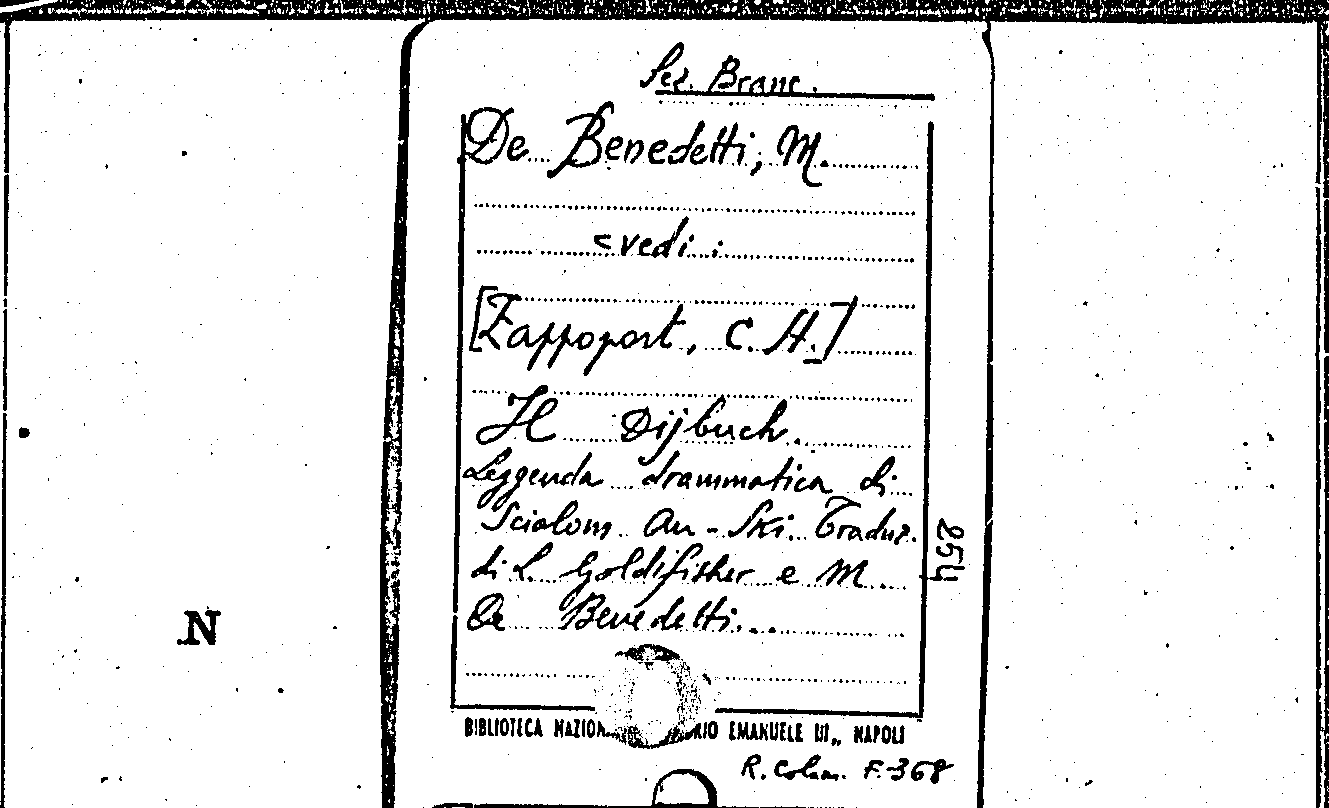 Sez. Branc.
De Benedetti, M.
< vedi :
[Zappoport, C. H.]
Il Dijbuch.
Leggenda drammatica di
Scialom An-Ski. Traduz.
di L. Goldifisher e M
De Benedetti...
254
N
BIBLIOTECA EMANUELE III„ NAPOLI
R. F. 368